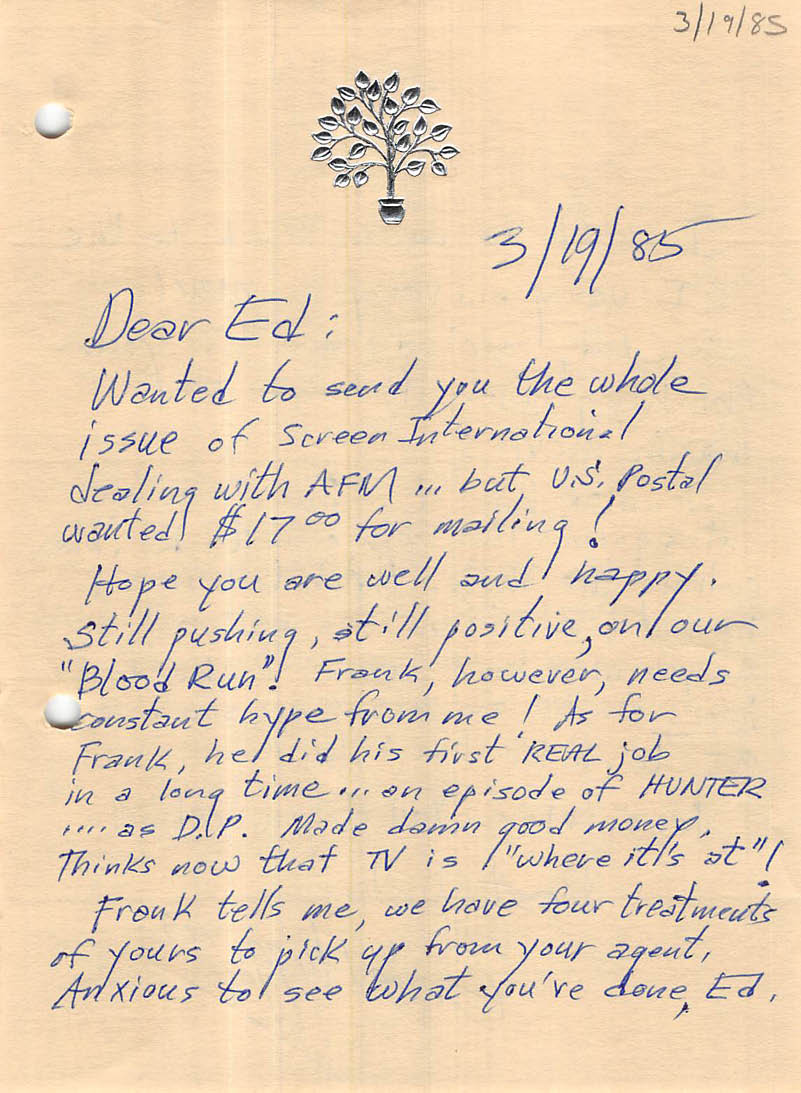 3/19/85
3/19/85
Dear Ed:
Wanted to send you the whole
issue of Screen International
dealing with AFM ... but U.S. Postal
wanted $17 00 for mailing!
Hope you are well and happy.
Still pushing, still positive, on our
"Blood Run"! Frank, however, needs
constant hype from me! As for
Frank, he did his first REAL job
in a long time ... an episode of HUNTER
.... as D.P. Made damn good money.
Thinks now that TV is "where it's at"!
Frank tells me, we have four treatments
of yours to pick up from your agent.
Anxious to see what you've done, Ed.